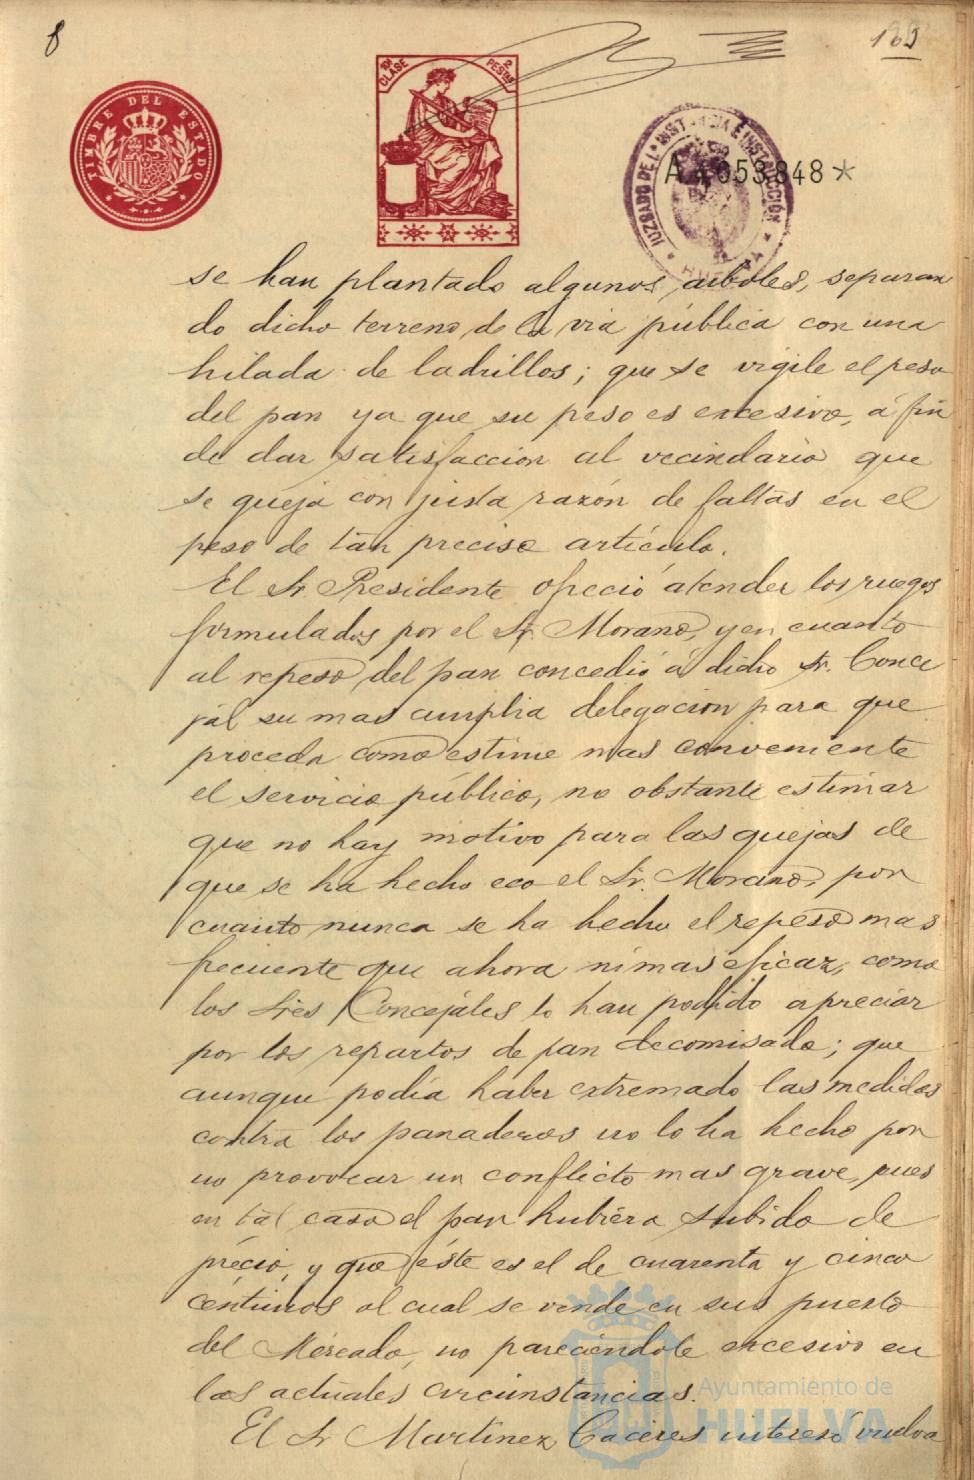 8
TIMBRE DEL ESTADO
10ª CLASE 2 PESTAS
JUZGADO DE 1ª INSTANCIA E INSTRUCCIÓN
A 4053848 *
se han plantado algunos, arboles, separan
do dicho terreno de la via pública con una
hilada de ladrillos; que se vigile el peso
del pan ya que su peso es excesivo, á fin
de dar satisfaccion al vecindario que
se queja con justa razón de faltas en el
peso de tan preciso artículo.
El Sr Presidente ofreció atender los ruegos
formulados por el Sr Morano, y en cuanto
al repeso del pan concedió á dicho Sr. Conce
jal su mas amplia delegacion para que
proceda como estime mas conveniente
el servicio público, no obstante estimar
que no hay motivo para las quejas de
que se ha hecho eco el Sr. Morano, por
cuanto nunca se ha hecho el repeso mas
frecuente que ahora ni mas eficaz, como
los Sres Concejales lo han podido apreciar
por los repartos de pan decomisado; que
aunque podia haber extremado las medidas
contra los panaderos no lo ha hecho por
no provocar un conflicto mas grave, pues
en tal caso el pan hubiera subido de
précio, y que éste es el de cuarenta y cinco
centimos al cual se vende en sus puesto
del Mercado, no pareciéndole excesivo en
las actuales circunstancias.
El Sr Martinez Caceres interesó vuelva
Ayuntamiento de
HUELVA